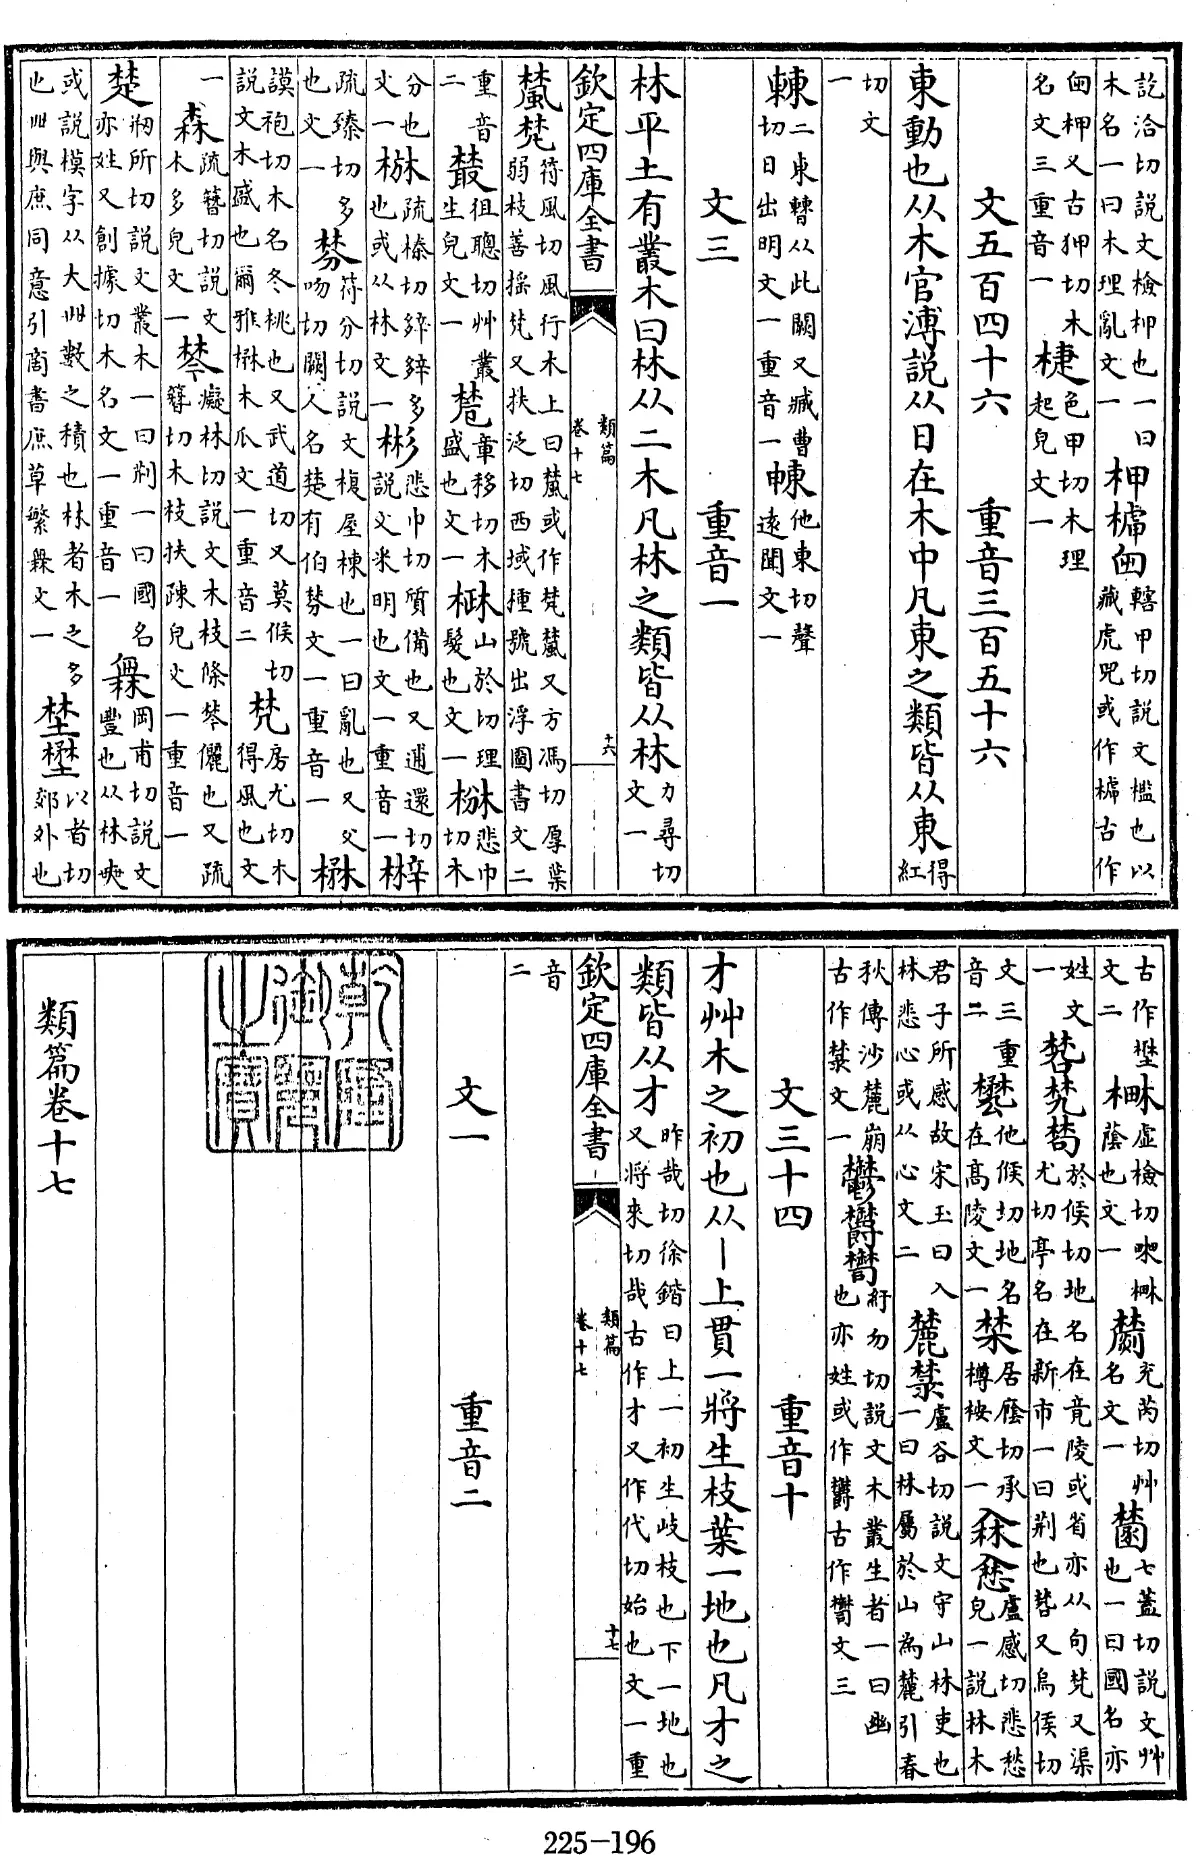 訖洽切説文檢柙也一曰木名一曰木理亂文一柙𣝗轄甲切説文檻也以藏虎兕或作𣝗古作
柙又古狎切木名文三重音一色甲切木理起皃文一
文五百四十六　重音三百五十六
東動也从木官溥説从日在木中凡東之類皆从東得紅
切文一
㯥二東轉从此闕又臧曹切日出明文一重音一他東切聲遠聞文一
文三　重音一
林平土有叢木曰林从二木凡林之類皆从林力尋切文一
欽定四庫全書　類篇卷十七　十六
檒梵符風切風行木上曰檒或作梵檒又方馮切厚葉弱枝善揺梵又扶泛切西域種號出浮圖書文二
重音二徂聰切艸叢生皃文一章移切木盛也文一山於切理髮也文一悲巾切木
分也文一疏榛切㷣多也或从林文一彬悲巾切質備也又逋還切説文米明也文一重音一
疏臻切多也文一棼符分切説文複屋棟也一曰亂也又父吻切闕人名楚有伯棼文一重音一楙
謨袍切木名冬桃也又武道切又莫候切説文木盛也爾雅楙木瓜文一重音二梵房尤切木得風也文
一森疏簪切説文木多皃文一棽癡林切説文木枝條棽儷也又疏簪切木枝扶疎皃文一重音一
楚刱所切説文叢木一曰荆一曰國名亦姓又創據切木名文一重音一𣞤岡甫切説文豐也从林𡘲
或説模字从大卌數之積也林者木之多也卌與庶同意引商書庶草繁𣞤文一埜壄以者切郊外也
古作壄文二虛檢切蔭也文一充芮切艸名文一七蓋切説文艸也一曰國名亦
姓文一於候切地名在竟陵或省亦从句梵又渠尤切亭名在新市一曰荆也又烏侯切
文三重音二他候切地名在髙陵文一禁居廕切承樽桉文一盧感切悲愁皃一説林木
君子所感故宋玉曰入林悲心或从心文二麓盧谷切説文守山林吏也一曰林屬於山為麓引春
秋傳沙麓崩古作文一鬱紆勿切説文木叢生者一曰幽也亦姓或作古作文三
文三十四　重音十
才艸木之初也从丨上貫一將生枝葉一地也凡才之
類皆从才昨哉切徐鍇曰上一初生歧枝也下一地也又將來切哉古作才又作代切始也文一重
欽定四庫全書　類篇卷十七　十七
音二
文一　重音二
乾隆御覽之寶
類篇卷十七
225-196